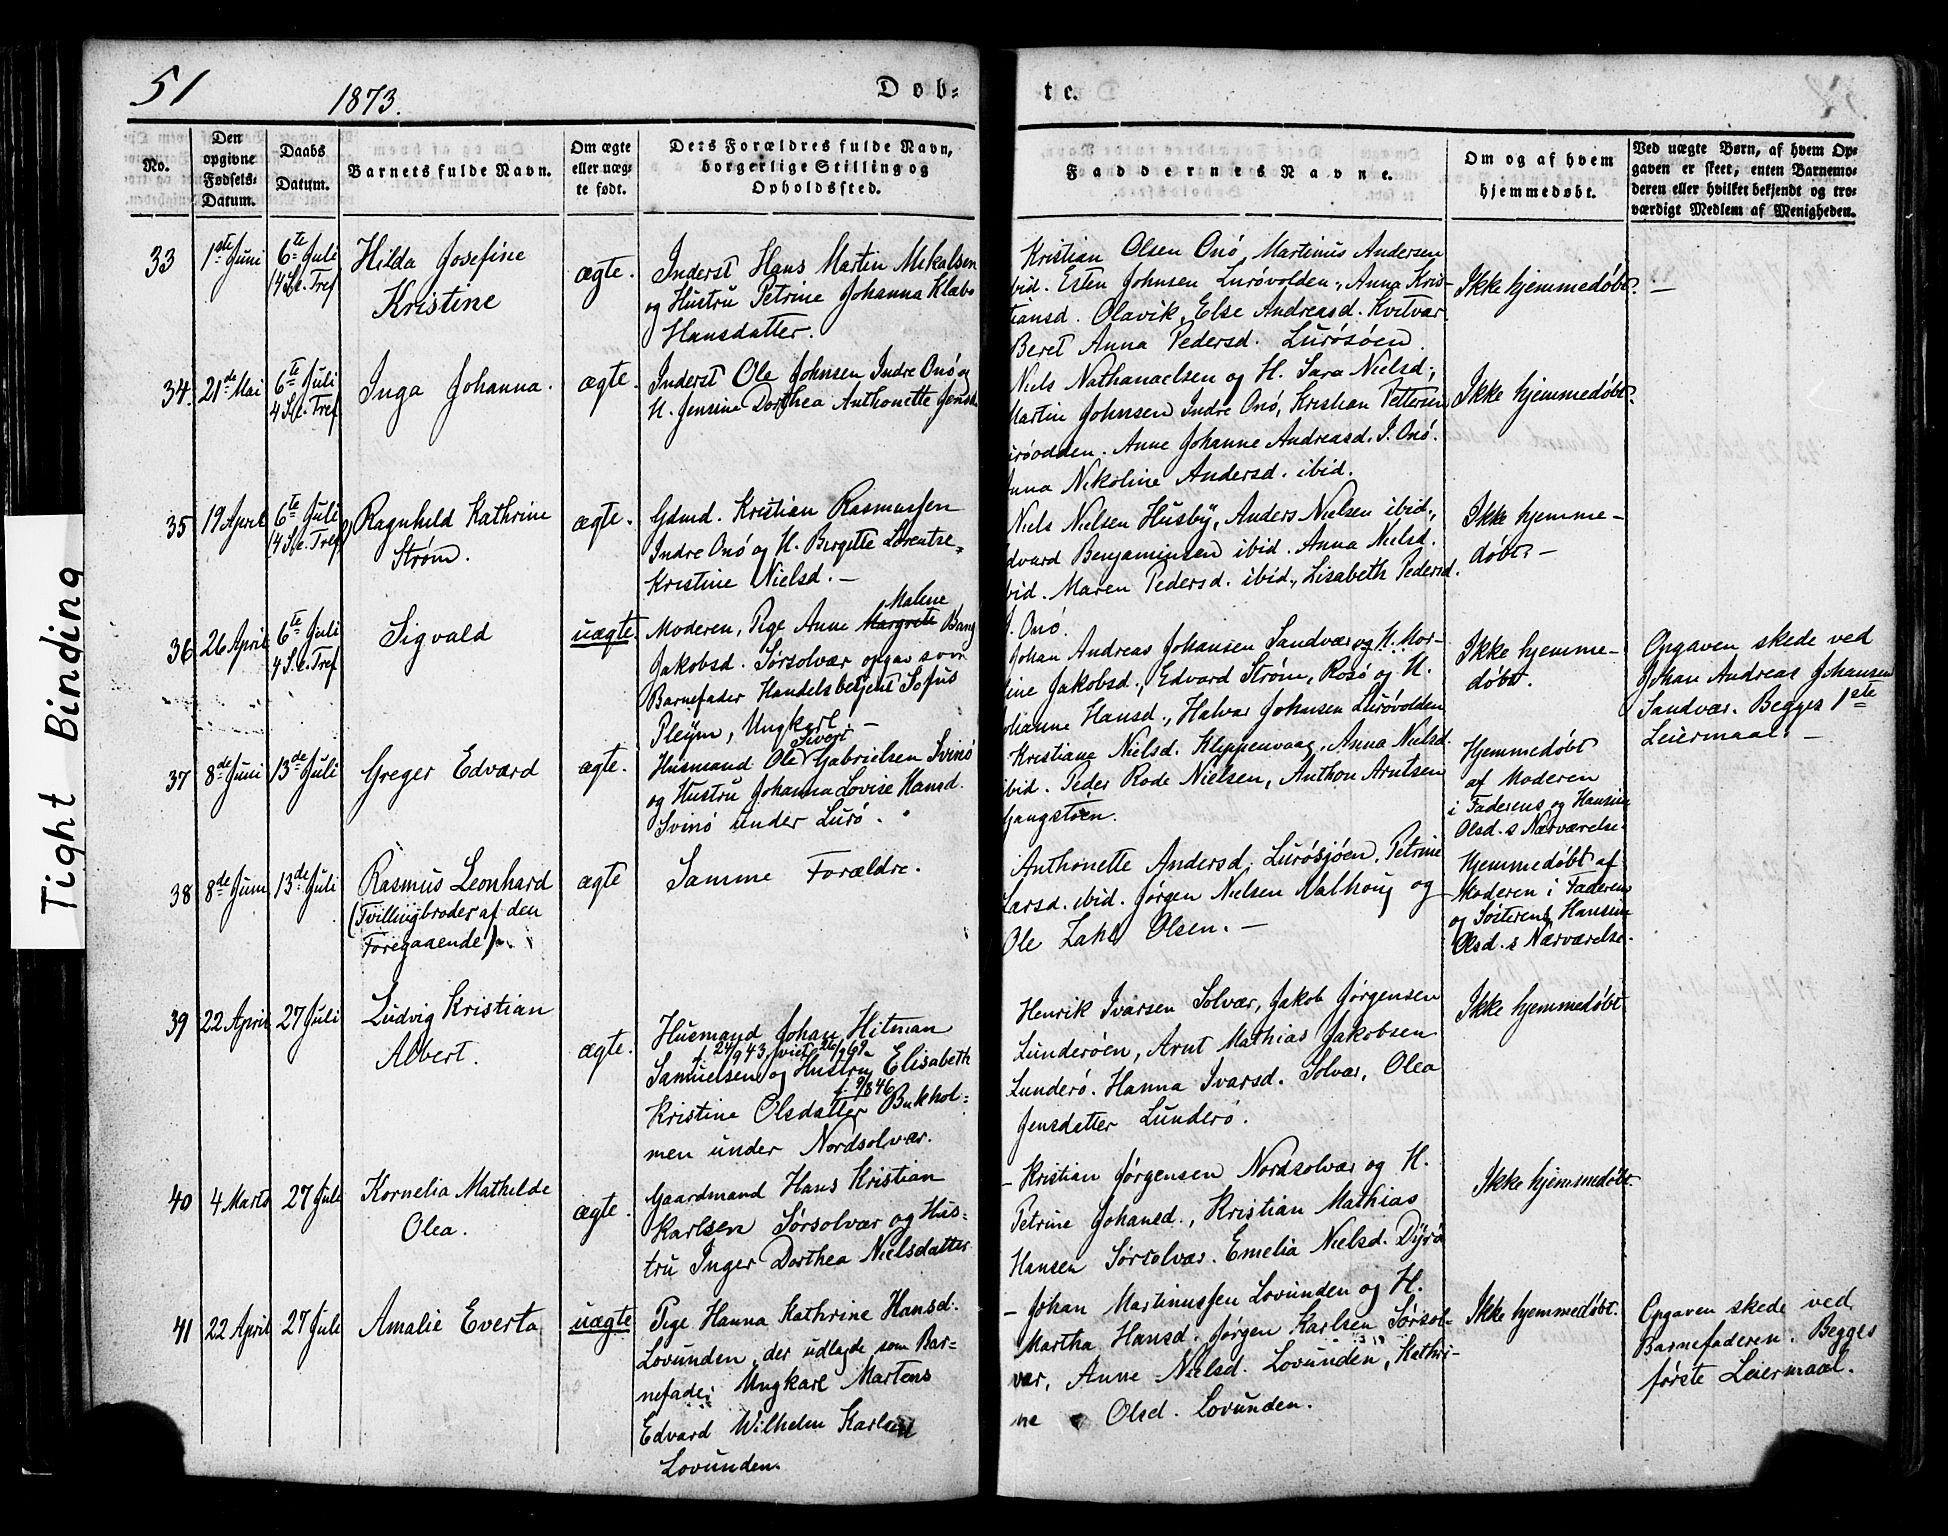 51
1873.
Døb-
te.
No.
Den opgivne Fødsels-Datum.
Daabs Datum.
Barnets fulde Navn.
Om ægte eller uæg-te født.
Ders Forældres fulde Navn, borgerlige Stilling og Opholdsfted.
Faddernes Navne.
Om og af hvem hjemmedøbt.
Ved uægte Børn, af hvem Op-
gaven er skeet, enten Barnemo-
deren eller hvilket bekjendt og tro-
værdigt Medlem af Menigheden.
33
1ste Juni
6te Juli
4 S. e. Tref
Hilda Josefine
Kristine
ægte.
Inderst Hans Martin Mikalsen
og Hustru Petrine Johanna Klæbo
Hansdatter.
Kristian Olsen Onö, Martinus Andersen
ibid. Esten Johnsen Lurøvolden, Anna Kris-
tiansd. Olavik, Else Andreasd. Kvitvær.
Beret Anna Pedersd. Lurøsøen.
Ikke hjemmedøbt.
—
34.
21de Mai
6te Juli
4 S. e. Tref
Inga Johanna.
ægte.
Inderst Ole Johnsen Indre Onö og
H. Jensine Dorthea Anthonette
Niels Nathanaelsen og H. Sara Nielsd.,
Martin Johnsen Indre Onö, Kristian Pettersen
Anne Johanne Andreasd. I. Onö.
Nikoline Andersd. ibid.
Ikke hjemmedøbt.
35
19 April
6te Juli
4 S. e. Tref
Ragnhild Kathrine
Strøm.
ægte.
Gdmd. Kristian Rasmussen
Indre Onö og H. Birgitte Lorentze-
Kristine Nielsd. —
Niels Nielsen Husby, Anders Nielsen ibid.,
Edvard Benjaminsen ibid. Anna Nielsd.
ibid. Maren Pedersd. ibid., Lisabeth Pedersd.
I. Onö.
Ikke hjemme-
døbt —
36
26 April
6te Juli
4 S. e. Tref
Sigvald
uægte.
Malene
Moderen, Pige Anne Margrete Bang
Jakobsd. Sørsolvær opgav som
Barnefader Handelsbetjent Sofus
Pleym, Ungkarl. —
Johan Andreas Johansen Sandvær og H. Mor-
Jakobsd., Edvard Strøm, Rosö og H.
Johanne Hansd., Halvar Johnsen Lurøvolden
Ikke hjemme-
døbt.
Opgaven skede ved
Johan Andreas Johansen
Sandvær. Begges 1ste
Leiermaal. —
37
8de Juni
13de Juli
Greger Edvard
ægte.
Sivert
Husmand Ole Gabrielsen Svinö
og Hustru Johanna Lovise Hansd.
Svinö under Lurö.
Kristiane Nielsd. Kleppenvaag, Anna Nielsd.
ibid. Peder Rode Nielsen, Anthon Arntsen
Hjemmedøbt
af Moderen
i Faderens og Hansine
Olsd.s Nærværelse.
38
8de Juni
13de Juli
Rasmus Leonhard
(Tvillingbroder af den
Foregaaende).
ægte
Samme Forældre.
Anthonette Andersd. Lurøsjøen, Petrine
Larsd. ibid. Jørgen Nielsen Valhoug og
Ole Zahl Olsen. —
Hjemmedøbt af
Moderen i Faderens
og Søsterens Hansine
Olsd.s Nærværelse.
39
22 April
27 Juli
Ludvig Kristian
Albert.
ægte.
Husmand Johan Hitman
f. 24/9 43, viet 26/9 69
Samuelsen og Hustru Elisabeth
f. 9/8 46
Kristine Olsdatter Bukhol-
men under Nordsolvær.
Henrik Ivarsen Solvær, Jakob Jørgensen
Lunderøen, Arnt Mathias Jakobsen
Lunderö. Hanna Ivarsd. Solvær, Olea
Jensdatter Lunderö.
Ikke hjemmedøbt
40
4 Marts
27 Juli
Kornelia Mathilde
Olea.
ægte.
Gaardmand Hans Kristian
Karlsen Sørsolvær og Hus-
tru Inger Dorthea Nielsdatter
— Kristian Jørgensen Nordsolvær og H.
Petrine Johansd., Kristian Mathias
Hansen Sørsolvær. Emelia Nielsd. Dyrö
Ikke hjemmedøbt.
41
22 April
27 Juli
Amalie Everta
uægte
Pige Hanna Kathrine Hansd.
Lovunden, der udlagde som Bar-
nefader Ungkarl Martens
Edvard Wilhelm Karlsen
Lovunden.
— Johan Martinussen Lovunden og H.
Martha Hansd. Jørgen Karlsen Sørsol-
vær, Anne Nielsd. Lovunden, Kathri-
ne Olsd. Lovunden.
Ikke hjemmedøbt.
Opgaven skede ved
Barnefaderen. Begges
første Leiermaal.
Tight Binding